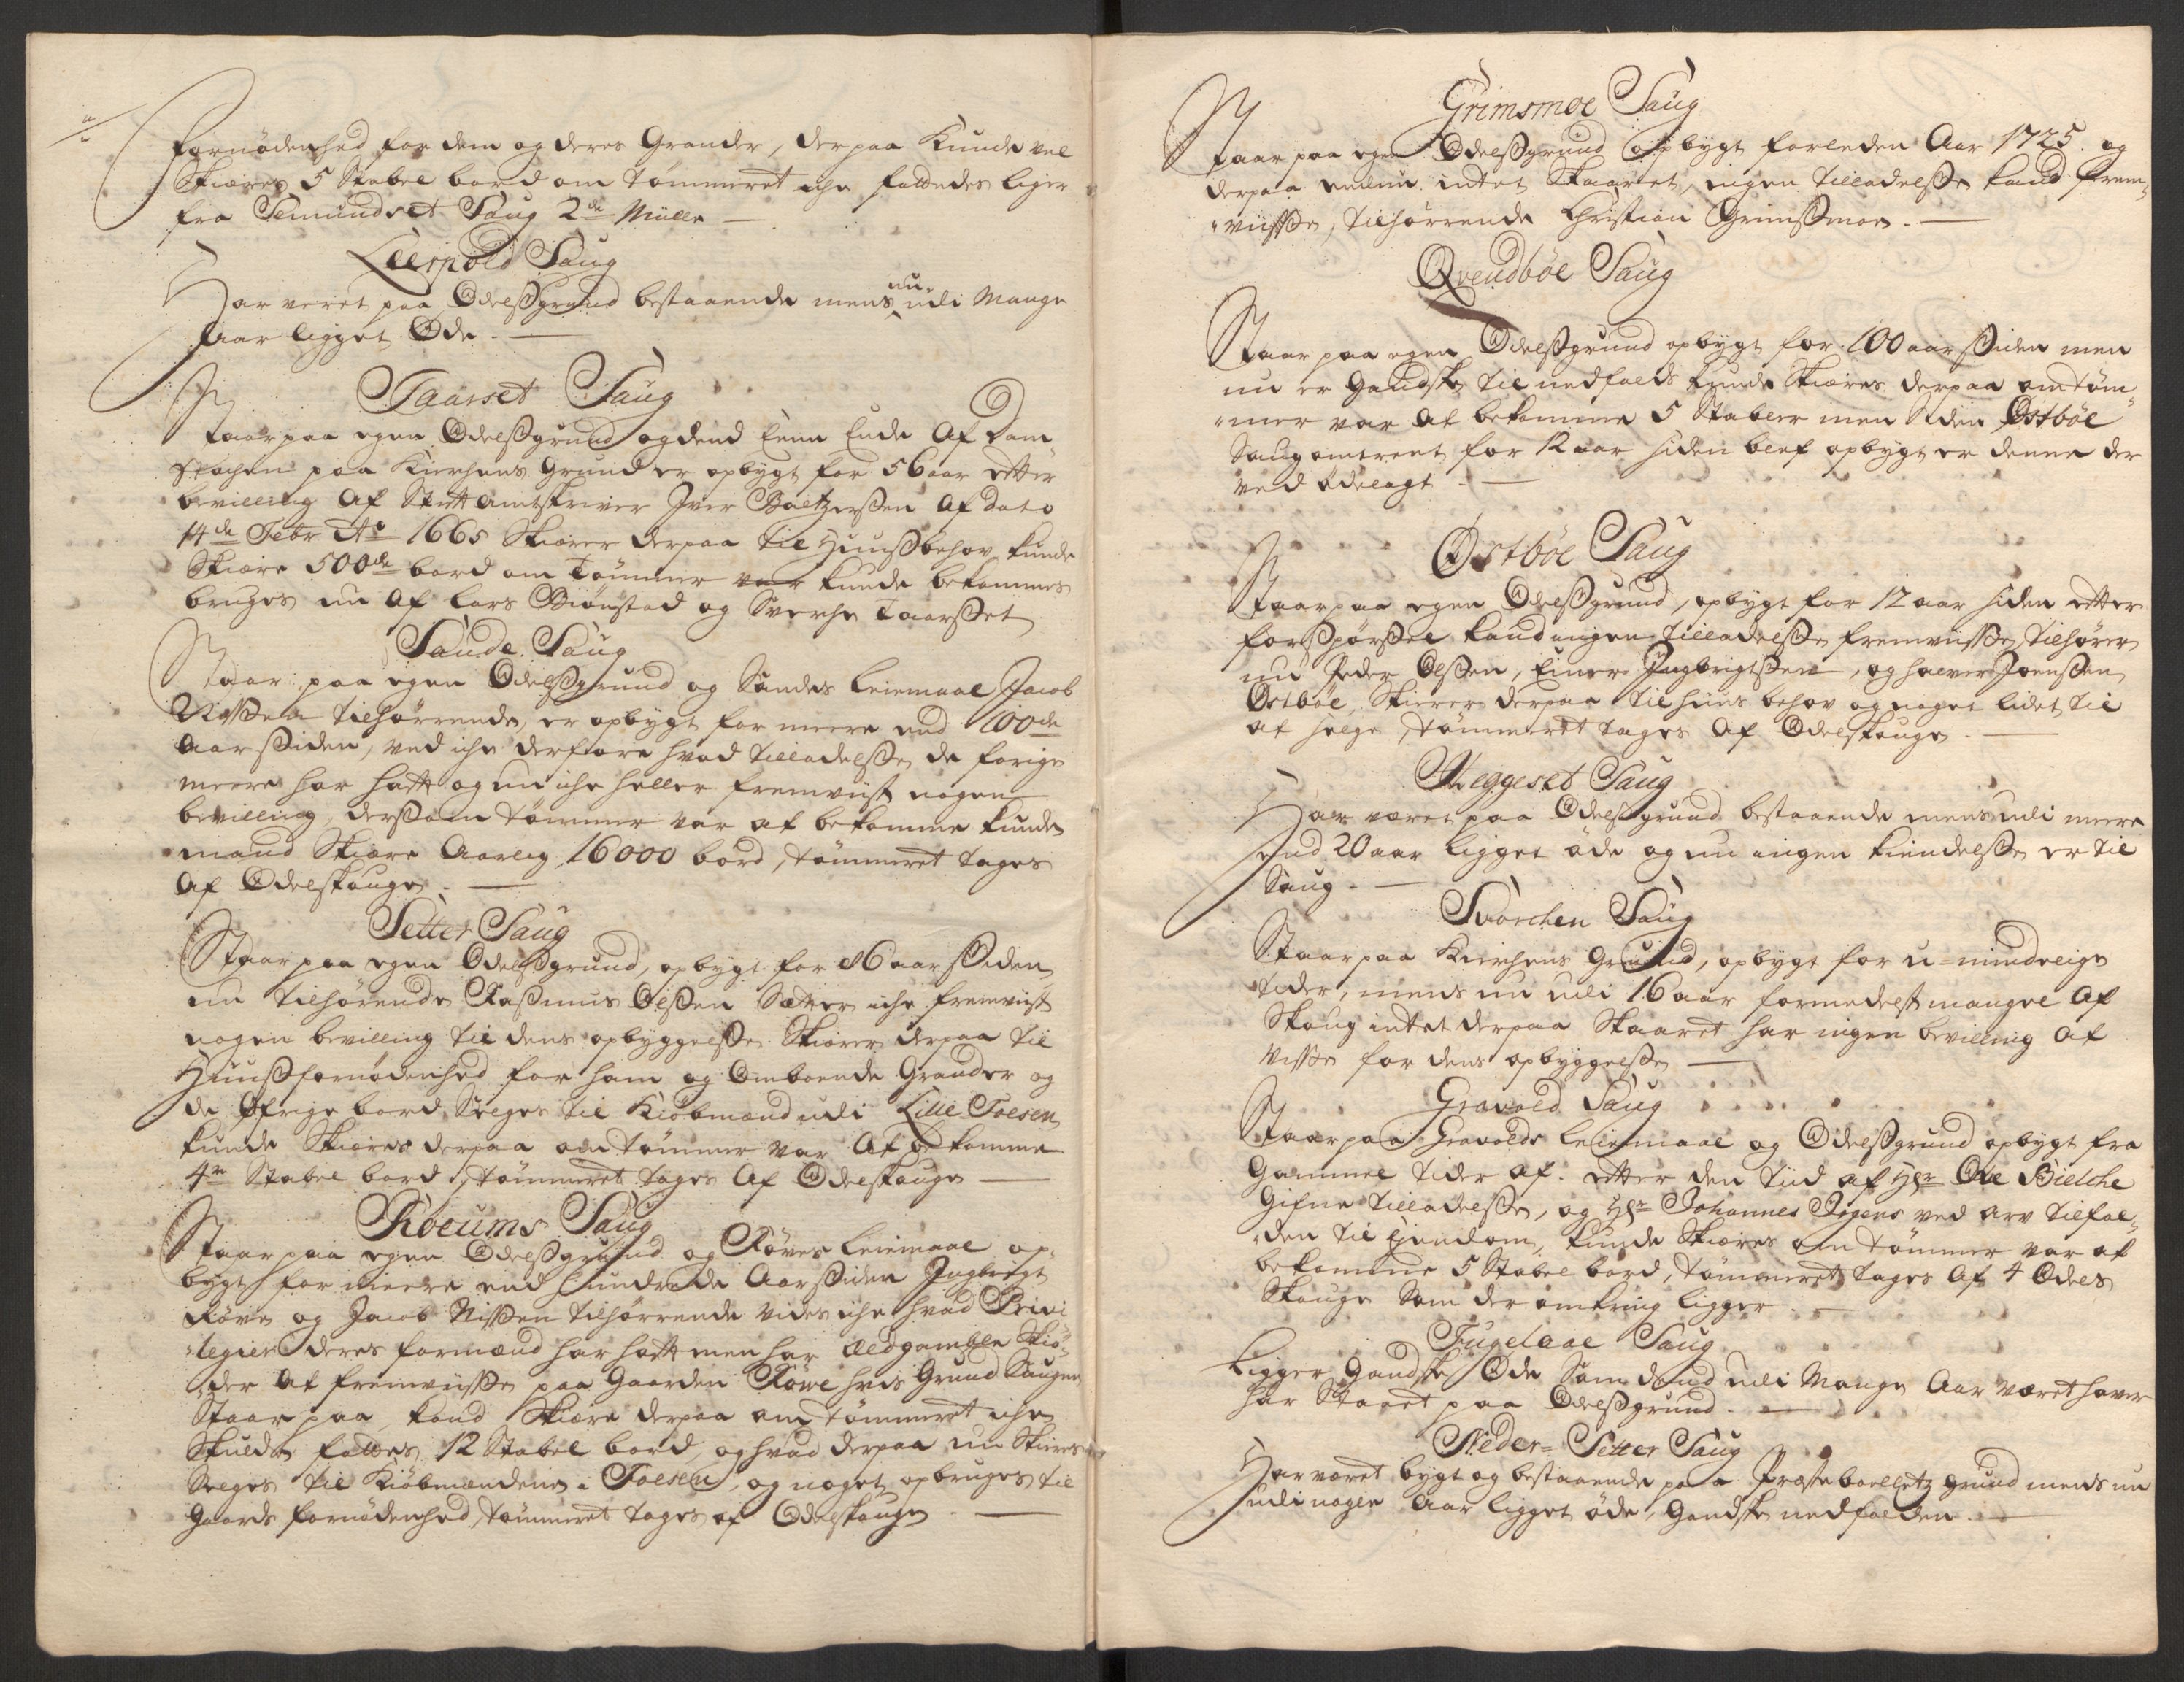 fornødenhed for dem og deres Grander, der paa Kunde vel
Skiæres 5 Stabel bord om tømmeret iche fattedes ligger
fra Semundset Saug 2de Mülle
Leerpold Saug
Har veret paa Odelsgrund bestaaende mens nu udi Mange
Aar ligget Øde.
Taarset Saug
Staar paa egen Odelsgrund og dend Eene Ende Af Dam
stochen paa Kierchens Grund er opbygt for 56 aar etter
bevilling Af Stift Amtskriver Iver Baltzersen Af dato
14de Febr Ao 1665 Skiærer derpaa til Huusbehov kunde
Skiære 500de bord om Tømmer var kunde bekommes
bruges nu Af Lars Biørnstad og Sverche Taarset
Sande Saug
Staar paa egen Odelsgrund og Sandes leiemaal Jacob
Nissen tilhørrende, er opbygt for meere end 100de
Aar siden, ved iche derfore hvad tilladelse de forige
meere har hatt og nu iche heller fremviist nogen
bevilling, dersom tømmer var at bekomme kunde
mand Skiære Aarlig 16000 bord, tømmeret tages
Af Odelskouge.
Setter Saug
Staar paa egen Odelsgrund, opbygt for 86 aar siden
nu tilhørende Rasmus Olsen Sætter iche fremviist
nogen bevilling til dens opbyggelse Skiærer derpaa til
Huusfornødenhed for ham og Omboende Grander og
de Øfrige bord Selges til Kiøbmænd udi Lille Foesen
kunde Skiæres derpaa om tømmer var At bekomme
4re Stabel bord, tømmeret tages Af Odelskouge
Roeums Saug
Staar paa egen Odelsgrund og Røves leiemaal op
bygt for meere end hundrede Aar siden Ingbrigt
Røve og Jacob Nissen tilhørrende vides iche hvad Privi
legier deres formænd har hatt men har Eldgamble Skiø
der At fremviisse paa Gaarden Røwe hvis Grund Saugen
Staar paa, kand Skiære derpaa om tømmeret iche
Skulde fattes 12 Stabel bord, og hvad derpaa nu Skiæres
Selges til Kiøbmændene i Foesen, og noget opbruges til
Gaards fornødenhed, tømmeret tages af Odelskouge
Grimsmoe Saug
Staar paa egen Odelsgrund opbygt forleden Aar 1725. og
derpaa endnu intet Skaaret, ingen tilladelse kand frem
viisse, tilhørrende Christian Grimsmoe.
Qvendbøe Saug
Staar paa egen Odelsgrund opbygt for 100 aar siden men
nu er Gandske til nedfalds kunde Skiæres derpaa om tøm
mer var At bekomme 5 Stabler men siden Østbøe
Saug omtrent for 12 aar siden blef opbygt er denne der
ved ødelagt.
Østbøe Saug
Staar paa egen Odelsgrund, opbygt for 12 aar siden etter
forspørsel kand ingen tilladelse fremviisse, tilhører
nu Peder Olsen, Einer Ingbrigtsen, og Halver Joensen
Østbøe, Skierer derpaa til huus behov og noget lidet til
at selge, tømmeret tages Af Odelskouge.
Meggeset Saug
Har været paa Odelsgrund bestaaende mens udi meere
end 20 aar ligget øde og nu ingen kiendelse er til
Saug.
Svorchen Saug
Staar paa Kierchens Grund, opbygt for u-mindelige
tider, mens nu udi 16 aar formedelst mangel Af
Skoug intet derpaa Skaaret har ingen bevilling at
Visse for dens opbyggelse
Gravold Saug
Staar paa Gravolds leiemaal og Odelsgrund opbygt fra
Gammel tider af. etter den tiid af Hr Ove Bielche
Gifne tilladelse, og Hr Johannes Irgens ved arv tilfal
den til Eiendom, kunde Skiæres om tømmer var at
bekomme 5 Stabel bord, tømmeret tages Af 4 Odels
Skouge Som der omkring ligger.
Fugelaae Saug
Ligger Gandske Øde Som dend udi Mange Aar været haver
har Staaet paa Odelsgrund.
Neder-Setter Saug
Har været bygt og bestaaende paa Præsteboelletz grund mens nu
udi nogle Aar ligget øde, Gandske nedfalden.